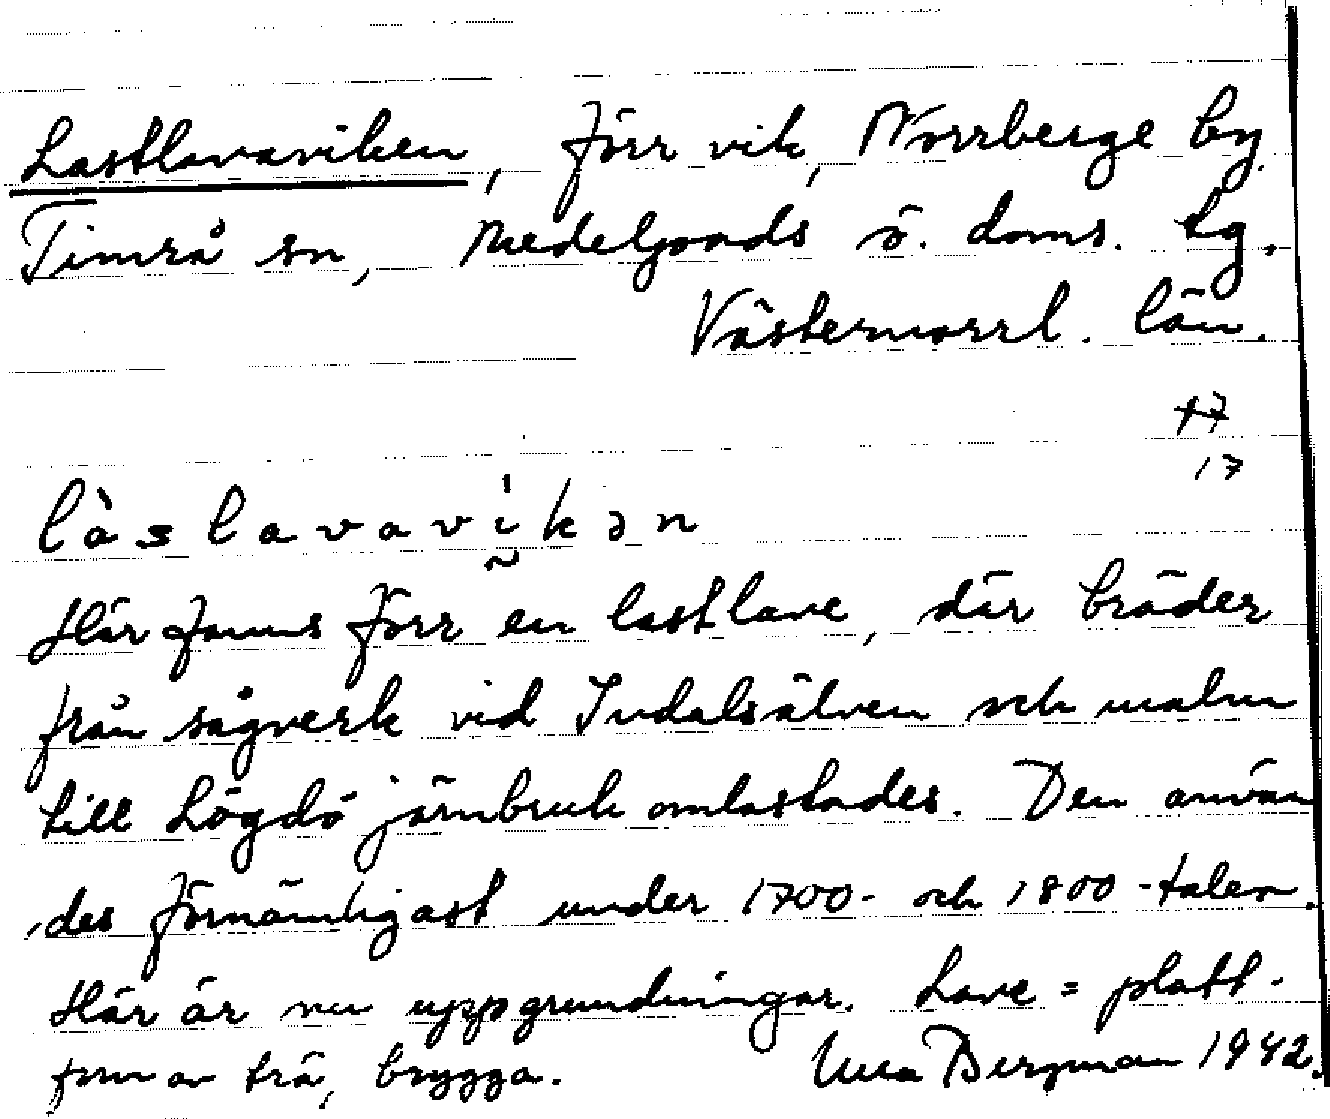 Lastlavaviken, förr vik, Norrberge by.
Timrå sn, Medelpads ö. doms. tg.
Västernorrl. län.
17
17
làslavavikən
Här fanns förr en lastlave, där bräder
från sågverk vid Indalsälven och malm
till Lögdö järnbruk omlastades. Den använ
des förnämligast under 1700- och 1800-talen.
Här är nu uppgrundningar. Lave = platt-
form av trä, brygga. Bergman 1942.